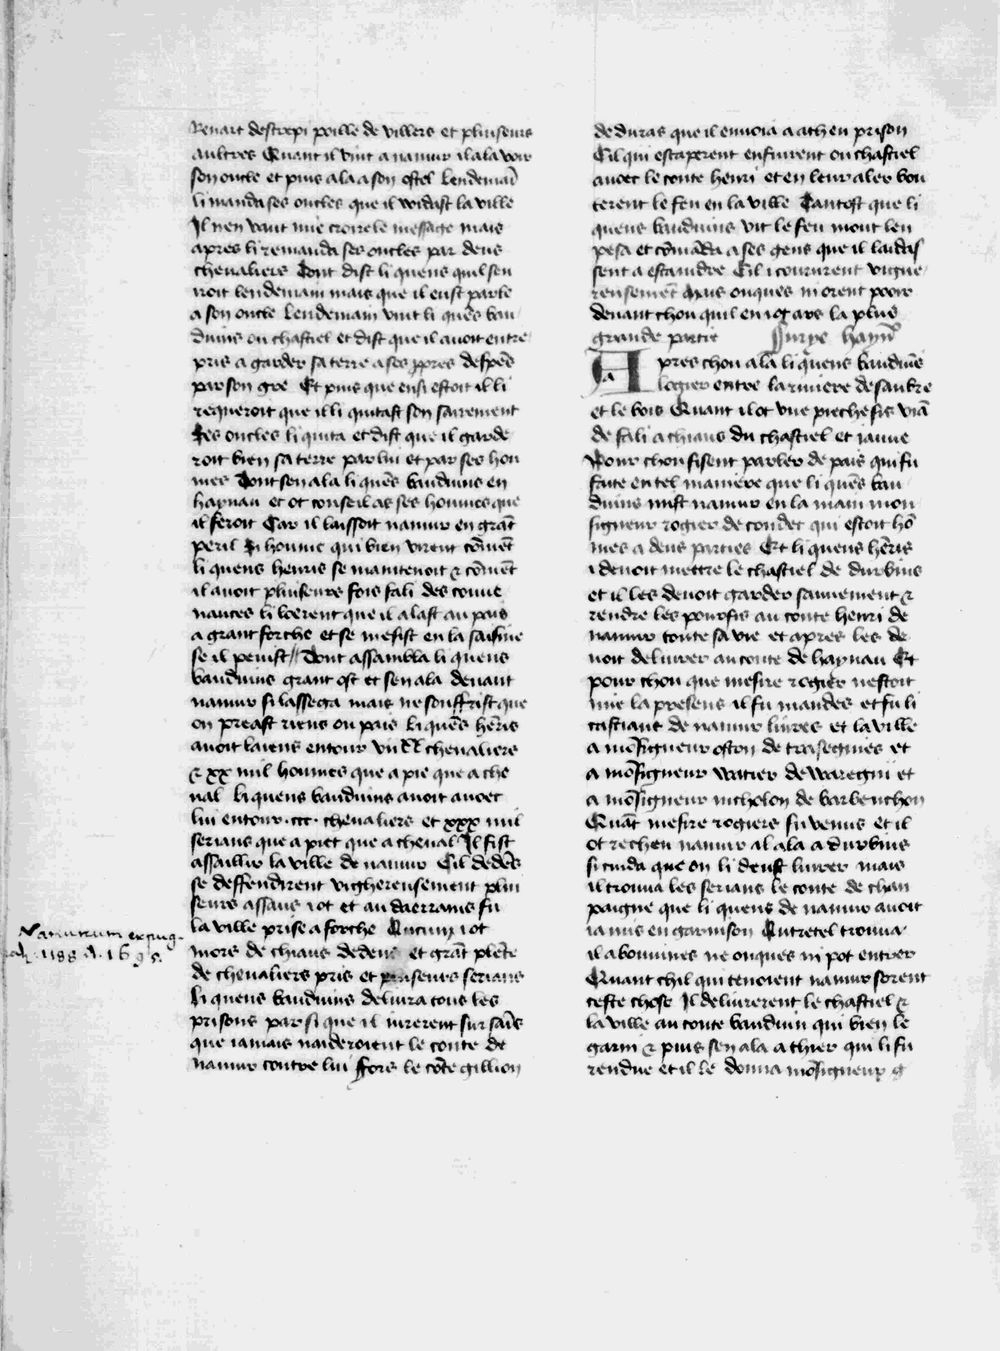 Renart destrepi poille de villers et pluiseurs
aultres Quant il vint a namur il ala veir
son oncle et puis ala a son ostel Lendemaī
li manda ses oncles que il widast la ville
Il nen vaut mie croire le message mais
apres li remanda ses oncles par deus
chevaliers Dont dist li quens quil sen
iroit lendemain mais que il eust parle
a son oncle Lendemain vint li quēs bau
duins ou chastiel et dist que il avoit entre
pris a garder sa terre a ses ꝓpres despēs
par son gre Et puis que ensi estoit il li
requeroit que il li quitast son sairement
Ses oncles li quita et dist que il garde
roit bien sa terre par lui et par ses hom
mes Dont sen ala li quēs bauduins en
haynau et ot conseil as ses hommes que
il feroit Car il laissoit namur en grāt
peril Si homme qui bien virent cōmēt
li quens henris se maintenoit & cōmēt
il avoit pluiseurs fois fali des conve
nances li loerent que il alast au pais
a grant forche et se mesist en la saisine
se il peuist // Dont assambla li quens
bauduins grant ost et sen ala devant
namur si lassega mais ne souffrist que
on preast riens ou pais Li quēs hēris
avoit laiens entour viiᶜ chevaliers
& xx mil hommes que a pie que a che
val Li quens bauduins avoit avoec
lui entour .ccc. chevaliers et xxx mil
serians que a piet que a cheval Il fist
assaillir la ville de namur Cil dedēs
se deffendirent vighereusement plui
seurs assaus i ot et au daerrains fu
la ville prise a forche Aucun i ot
mors de chiaus dedens et grāt plēte
de chevaliers pris et pluiseurs serians
Li quens bauduins delivra tous les
prisons par si que il iurerent sur saīs
que iamais naideroient le conte de
namur contre lui fors le cōte gillion
Namurcum expug-
1188
de duras que il envoia a ath en prison
Cil qui escaperent enfuirent ou chastiel
avoec le conte henri et en leur aler bou
terent le feu en la ville Tantost que li
quens bauduins vit le feu mout len
pesa et cōmāda a ses gens que il laidas
sent a estaindre Cil i coururent vigue
reusemēt Mais onques ni orent pooir
devant chou quil en i ot ars la plus
grande partie
Apres chou ala li quens bauduīs
logier entre la riviere de sambre
et le bois Quant il ot une pieche sis viā
de fali a chiaus du chastiel et iauue
Pour chou fisent parler de pais qui fu
faite en tel maniere que li quēs bau
duins mist namur en la main mon
signeur rogier de condet qui estoit hō
mes a deus parties Et li quens hēris
i devoit mettre le chastiel de durbuis
et il les devoit garder sainement &
rendre les pourfis au conte henri de
namur toute sa vie et apres les de
voit delivrer au conte de haynau Et
pour chou que mesire rogier nestoit
mie la presens il fu mandes et fu li
castiaus de namur livres et la ville
a mōsigneur oston de trasegnies et
a mōsigneur watier de waregni et
a mōsigneur nicholon de barbenchon
Quāt mesire rogiers fu venus et il
ot rechen namur al ala a durbuis
si cuida que on li deust livrer mais
il trouva les serians le conte de cham
paigne que li quens de namur avoit
ia mis en garnison Entretel trouva
il abommes ne onques ni pot entrer
Quant chil qui tenoient namur sorent
ceste chose Il delivrerent le chastiel &
la ville au conte bauduin qui bien le
garni & puis sen ala a thier qui li fu
rendue et il le donna mōsigneur g